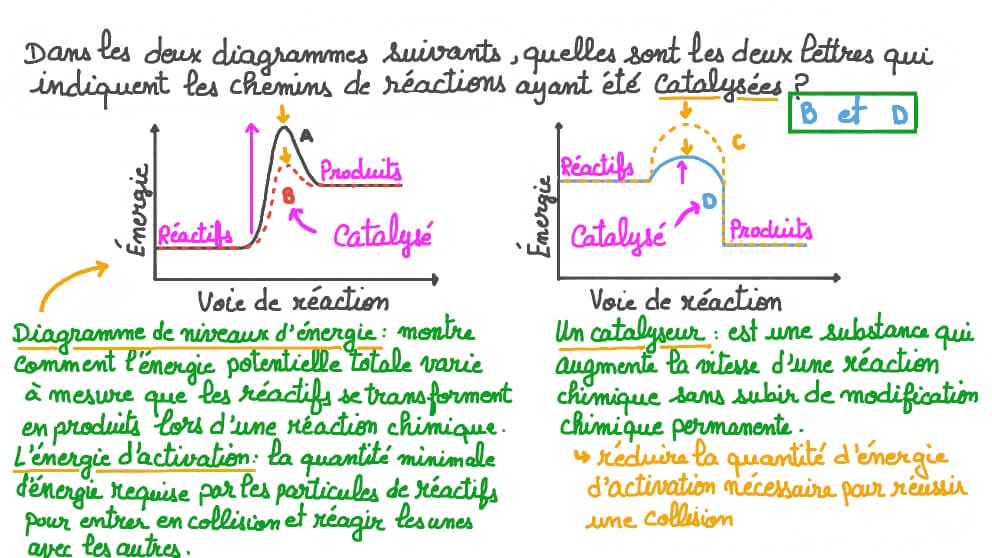 Dans les deux diagrammes suivants, quelles sont les deux lettres qui
indiquent les chemins de réactions ayant été catalysées ?
B et D
Énergie
A
Produits
B
Réactifs
Catalysé
Voie de réaction
Énergie
Réactifs
C
D
Catalysé
Produits
Voie de réaction
Diagramme de niveaux d'énergie : montre
comment l'énergie potentielle totale varie
à mesure que les réactifs se transforment
en produits lors d'une réaction chimique.
L'énergie d'activation : la quantité minimale
d'énergie requise par les particules de réactifs
pour entrer en collision et réagir les unes
avec les autres.
Un catalyseur : est une substance qui
augmente la vitesse d'une réaction
chimique sans subir de modification
chimique permanente.
↪ réduire la quantité d'énergie
d'activation nécessaire pour réussir
une collision